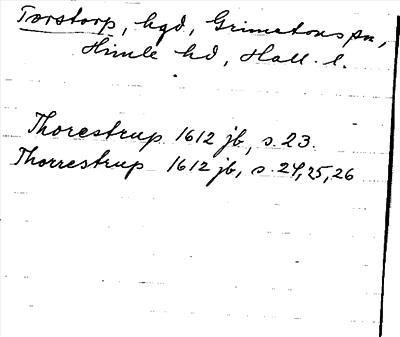 Torstorp, hgd, Grimetons sn,
Himle hd, Hall. l.
Thorestrup 1612 jb, s. 23.
Thorrestrup 1612 jb, s. 24, 25, 26